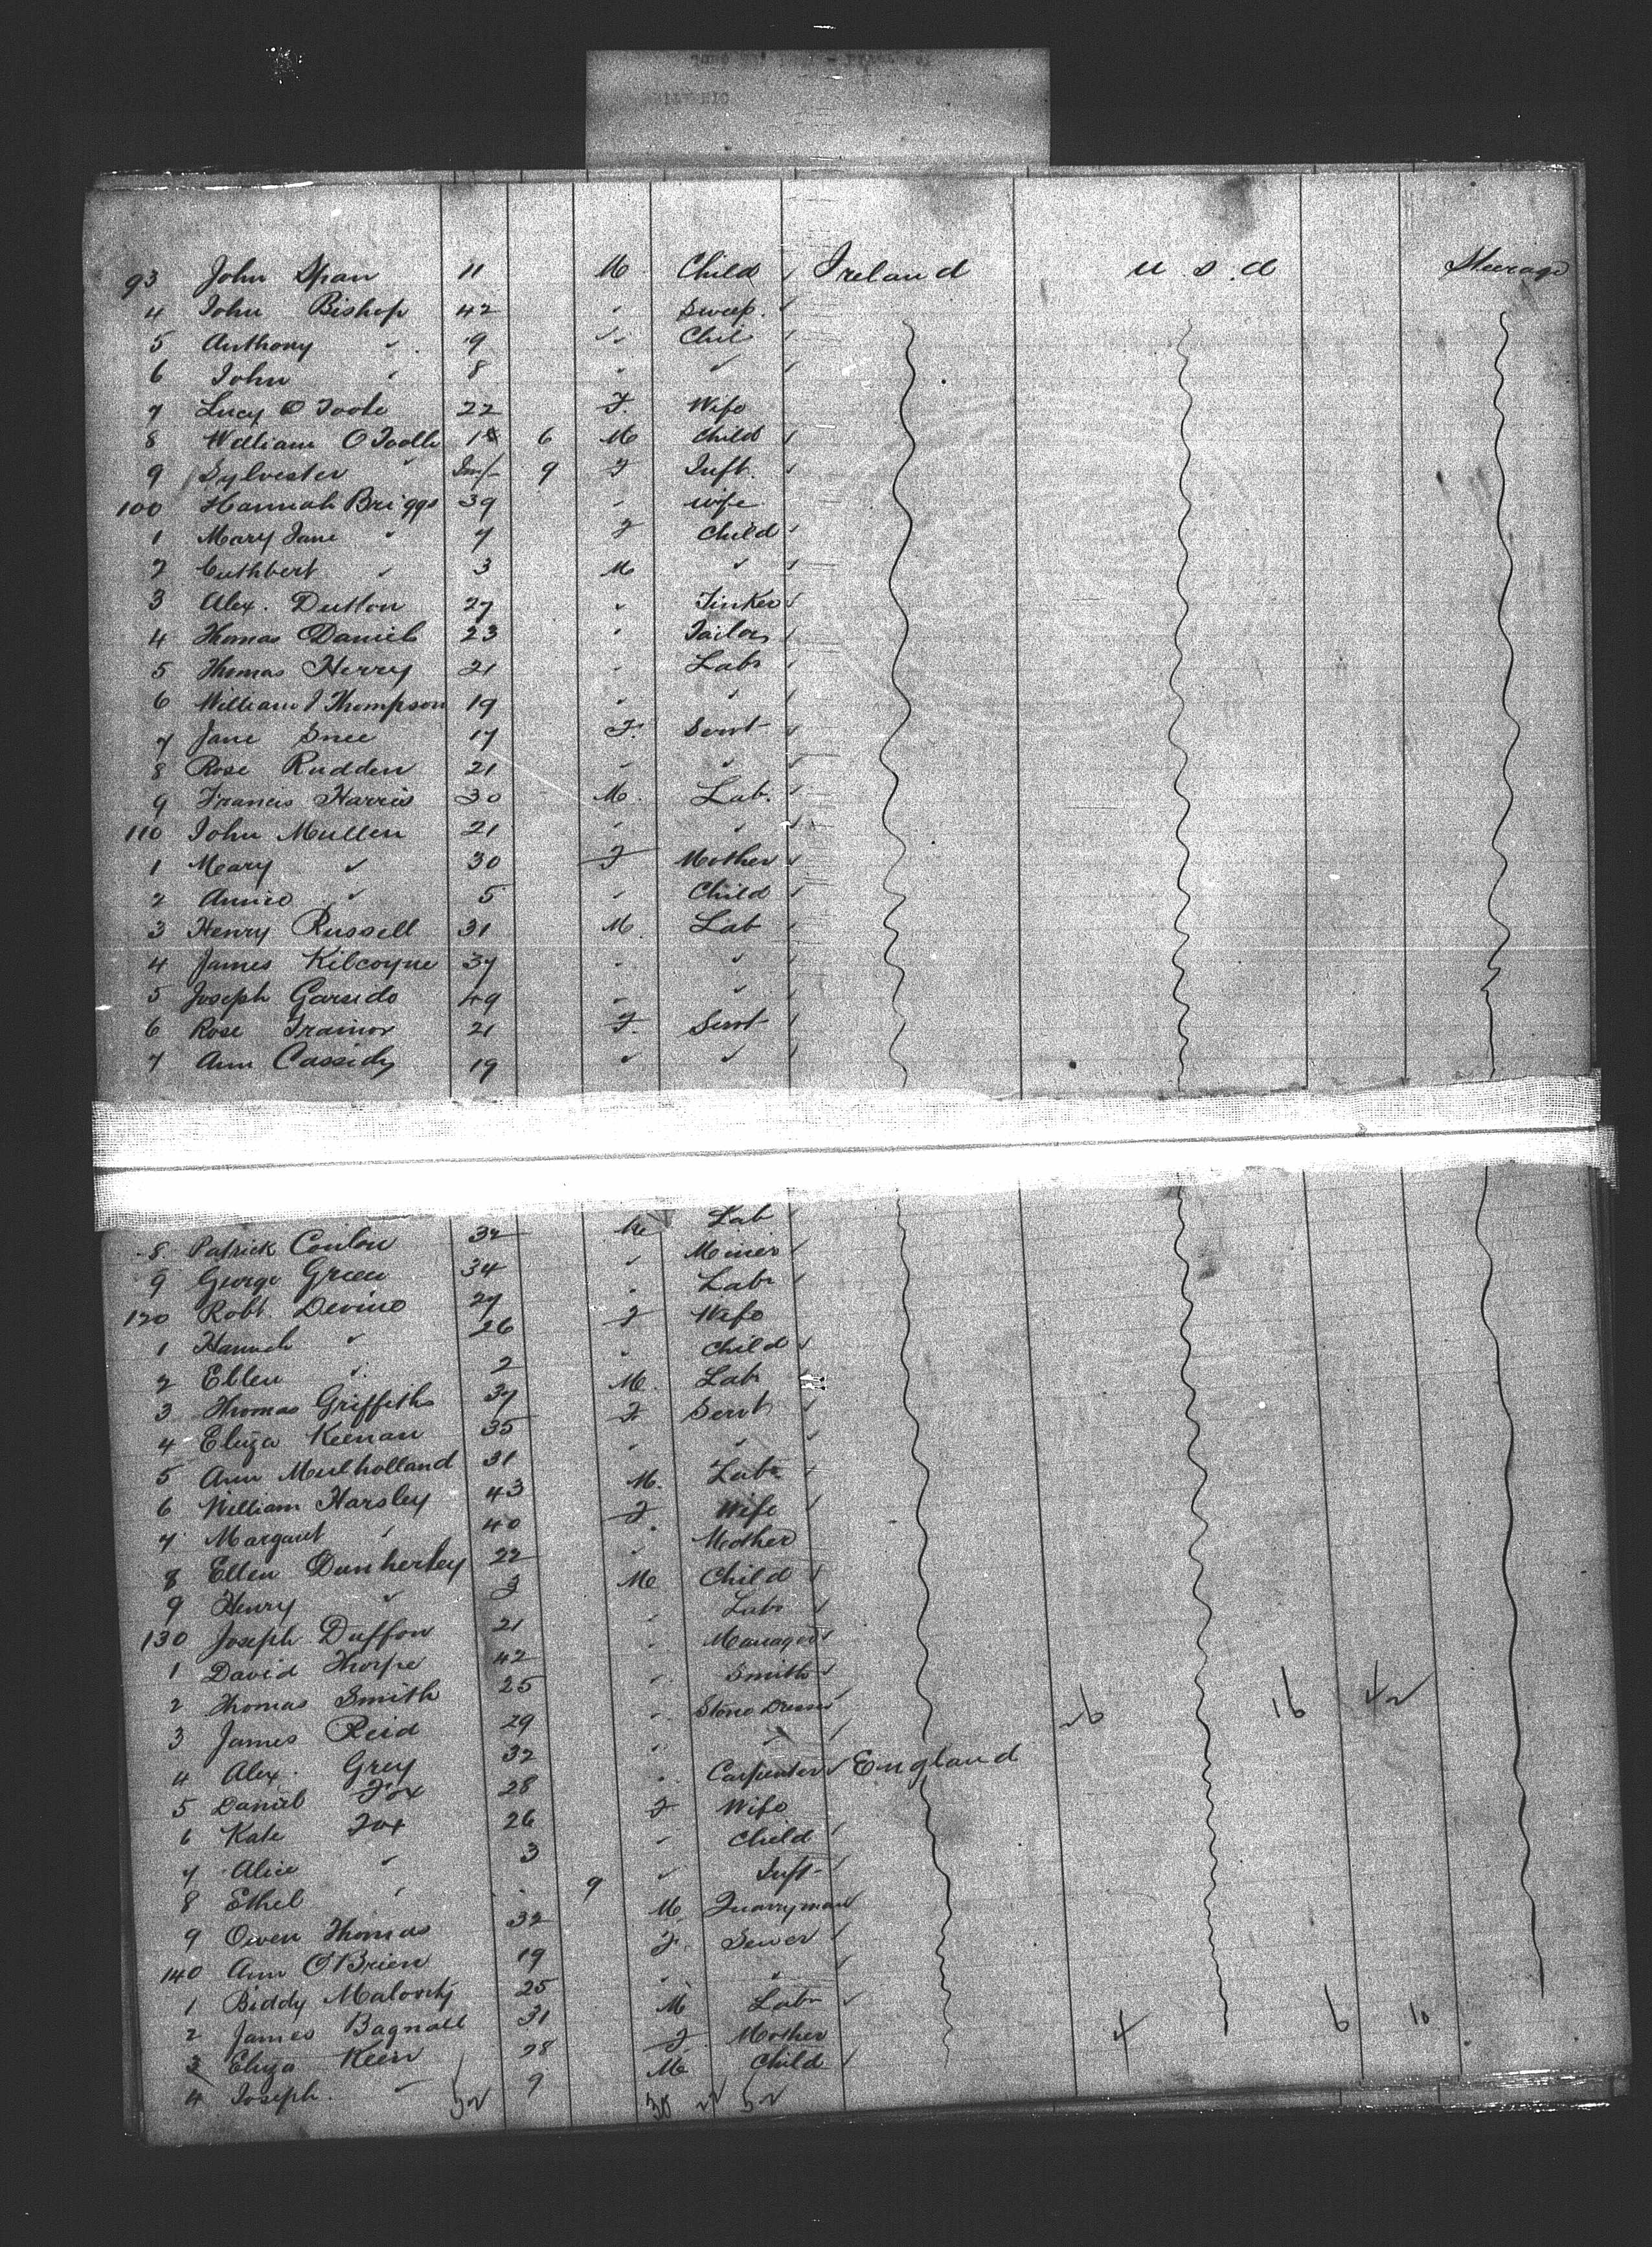 93 John Span 11 M. Child Ireland U. S. A Steerage
4 John Bishop 42 " Sweep.
5 Anthony " 9 " Chil
6 John " 8 " "
7 Lucy O Toole 22 F. Wife
8 William O Toolle 6 M Child
9 Sylvester " Inf 9 F Inft.
100 Hannah Briggs 39 " wife
1 Mary Jane " 7 F Child
2 Cuthbert " 3 M "
3 Alex. Dutton 27 " Tinker
4 Thomas Daniels 23 " Tailor
5 Thomas Herry 21 " Labr
6 William J Thompson 19 " "
7 Jane Snee 17 F. Servt
8 Rose Rudden 21 " "
9 Francis Harris 30 M. Lab.
110 John Mullen 21 " "
1 Mary " 30 F Mother
2 Annie " 5 " Child
3 Henry Russell 31 M. Lab
4 James Kilcoyne 37 " "
5 Joseph Garside 49 " "
6 Rose Trainor 21 F. Servt
7 Ann Cassidy 19 " "
8 Patrick Conlon 32 M Lab
9 George Green 34 " Miner
120 Robt. Devine 27 " Labr
1 Hannah " 26 F Wife
2 Ellen " 2 " Child
3 Thomas Griffiths 37 M. Labr
4 Eliza Keenan 35 F Servt
5 Ann Mulholland 31 " "
6 William Harsley 43 M. Labr
7 Margaret " 40 F Wife
8 Ellen Dunkerley 22 " Mother
9 Henry " 3 M Child
130 Joseph Duffon 21 " Labr
1 David Thorpe 42 " Manager
2 Thomas Smith 25 " Smith
3 James Reid 29 " Stone Dresser 26 16 42
4 Alex. Grey 32 " "
5 Daniel Fox 28 " Carpenter England
6 Kate Fox 26 F Wife
7 Alice " 3 " Child
8 Ethel " 9 " Inft
9 Owen Thomas 32 M. Quarryman
140 Ann O'Brien 19 F. Sewer
1 Biddy 25 " "
2 James Bagnall 31 M Labr
3 Eliza Keen 28 F. Mother 4 6 10
4 Joseph. " 9 M Child
52 30 22 52